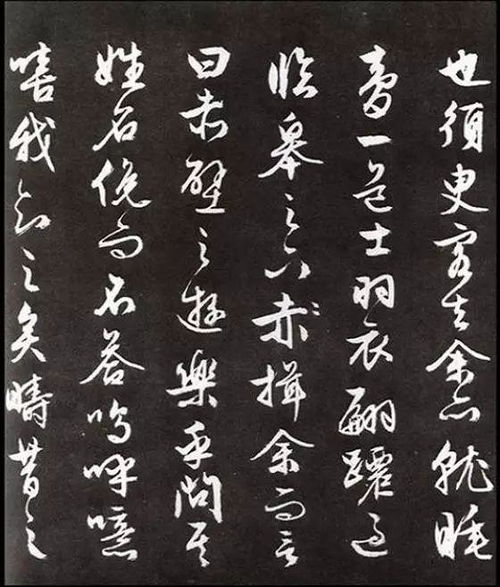 也須臾客去余亦就睡
夢一道士羽衣翩躚過
臨皋之下赤揖余而言
曰赤壁之遊樂乎問其
姓名俛而不答嗚呼噫
嘻我知之矣疇昔之